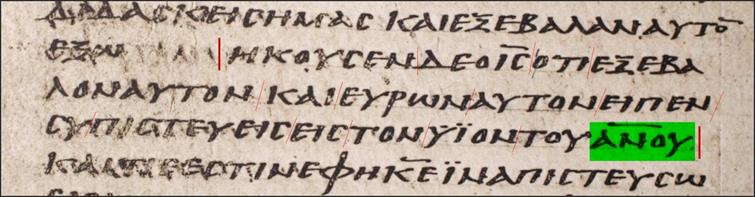 ΔΙΔΑϹΚΕΙϹΗΜΑϹ ΚΑΙΕΞΕΒΑΛΑΝΑΥΤΟ̅
ΕΞΩ ΗΚΟΥϹΕΝΔΕΟΙ̅Ϲ̅ΟΤΙΕΞΕΒΑ
ΛΟΝΑΥΤΟΝ ΚΑΙΕΥΡΩΝΑΥΤΟΝΕΙΠΕΝ
ϹΥΠΙϹΤΕΥΕΙϹΕΙϹΤΟΝΥΪΟΝΤΟΥΑ̅Ν̅Ο̅Υ̅
ΚΑΙΤΙϹΕϹΤΙΝΕΦΗΚ̅Ε̅ΪΝΑΠΙϹΤΕΥϹΩ